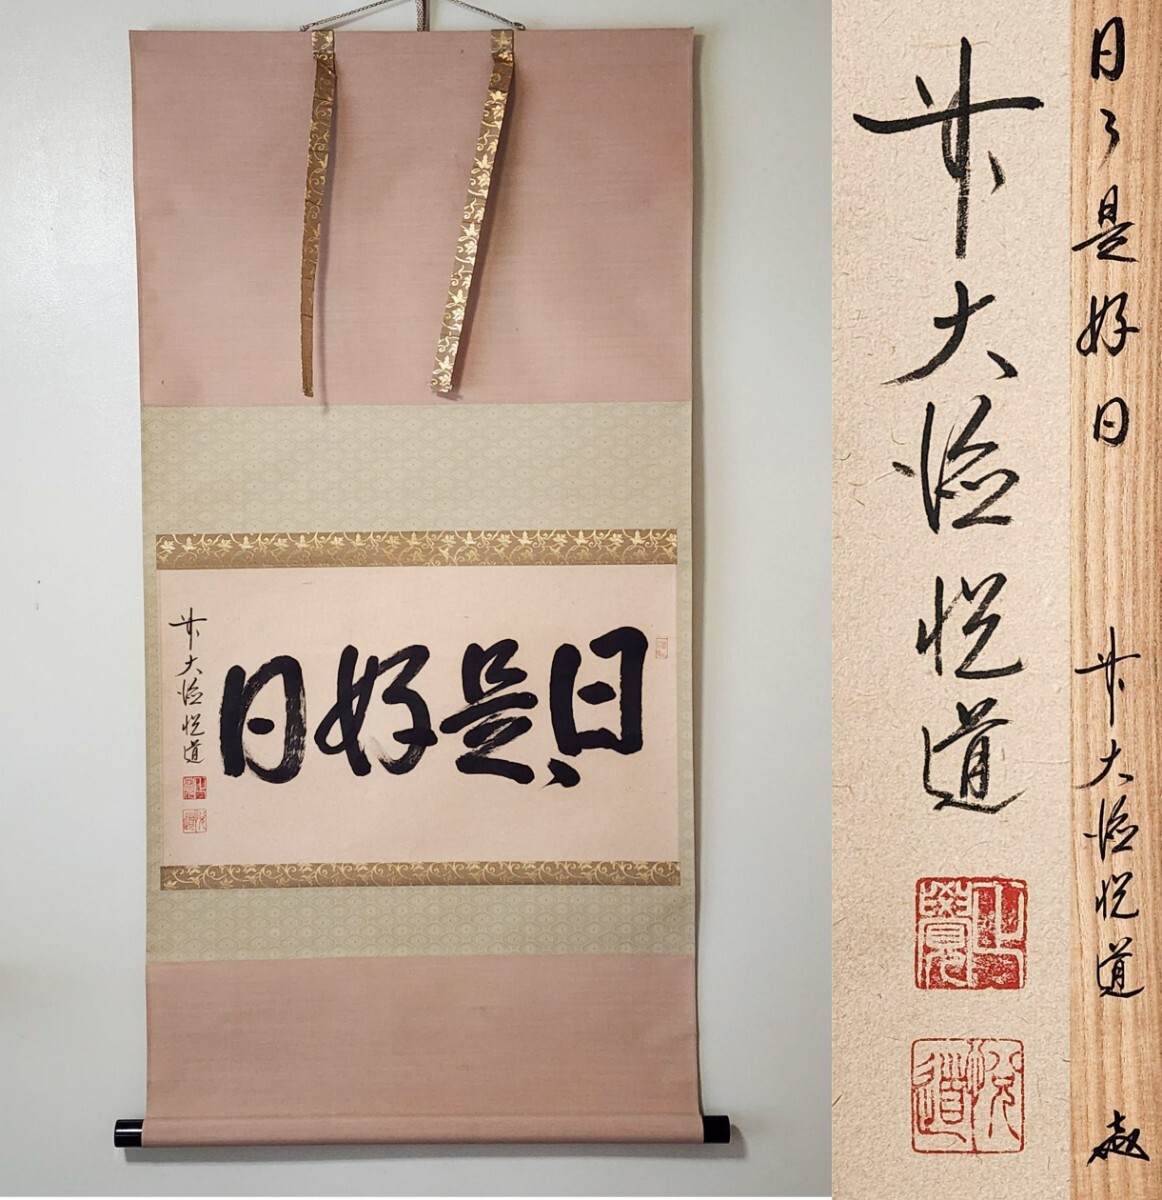 日々是好日
前大徳悦道
前大徳悦道
悦道
日々是好日 前大徳悦道